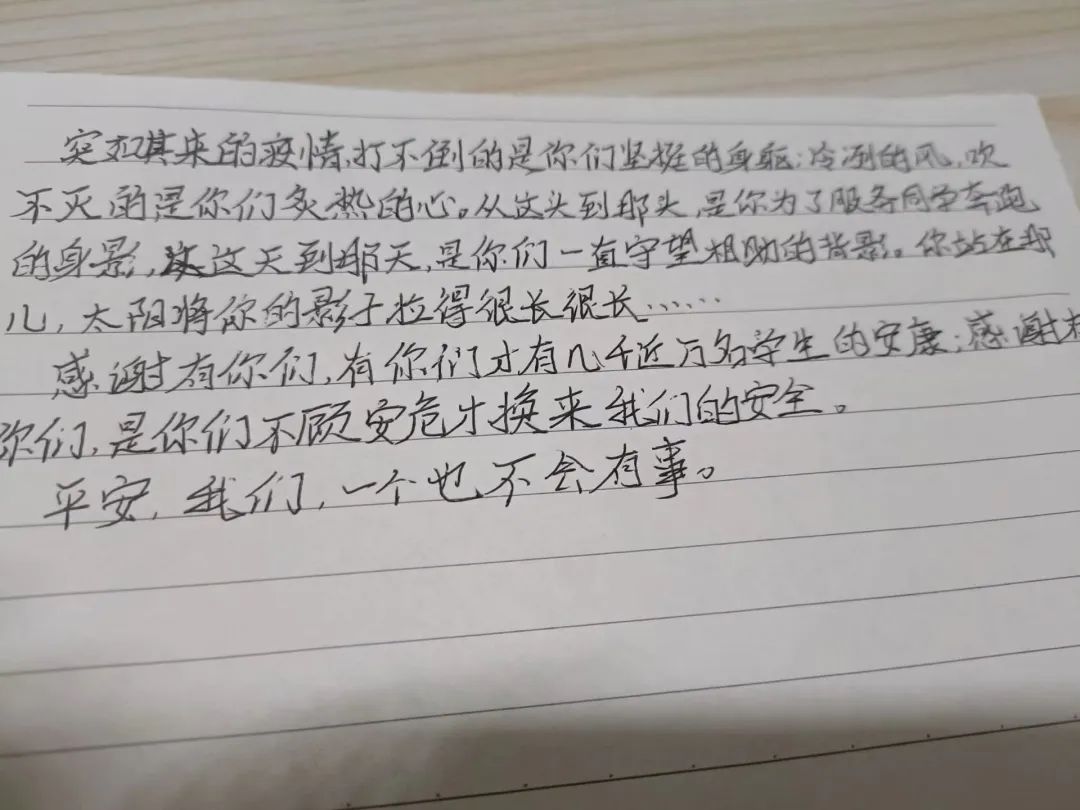 突如其来的疫情,打不倒的是你们坚挺的身躯;冷冽的风,吹
不灭的是你们炙热的心。从这头到那头,是你为了服务同学奔跑
的身影,从这天到那天,是你们一直守望相助的背影。你站在那
儿,太阳将你的影子拉得很长很长……
感谢有你们,有你们才有几千近万名学生的安康;感谢有
你们,是你们不顾安危才换来我们的安全。
平安,我们,一个也不会有事。